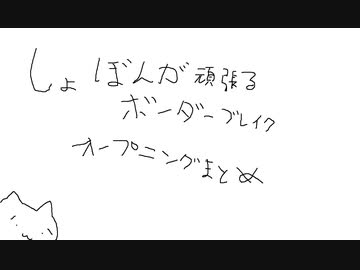 しょぼんが頑張る
ボーダーブレイク
オープニングまとめ